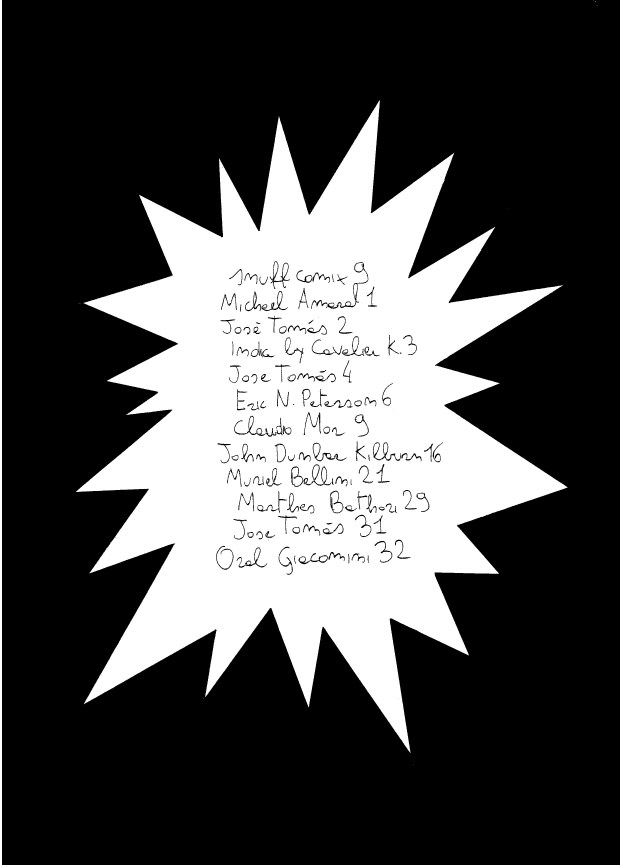 snuff comix 9
Michael Amaral 1
Josè Tomás 2
India by Cavalier K. 3
Jose Tomás 4
Eric N. Peterson 6
Claudio Mor 9
John Dunbar Kilburn 16
Muriel Bellini 21
Marthes Bathori 29
Jose Tomás 31
Ozal Giacomini 32